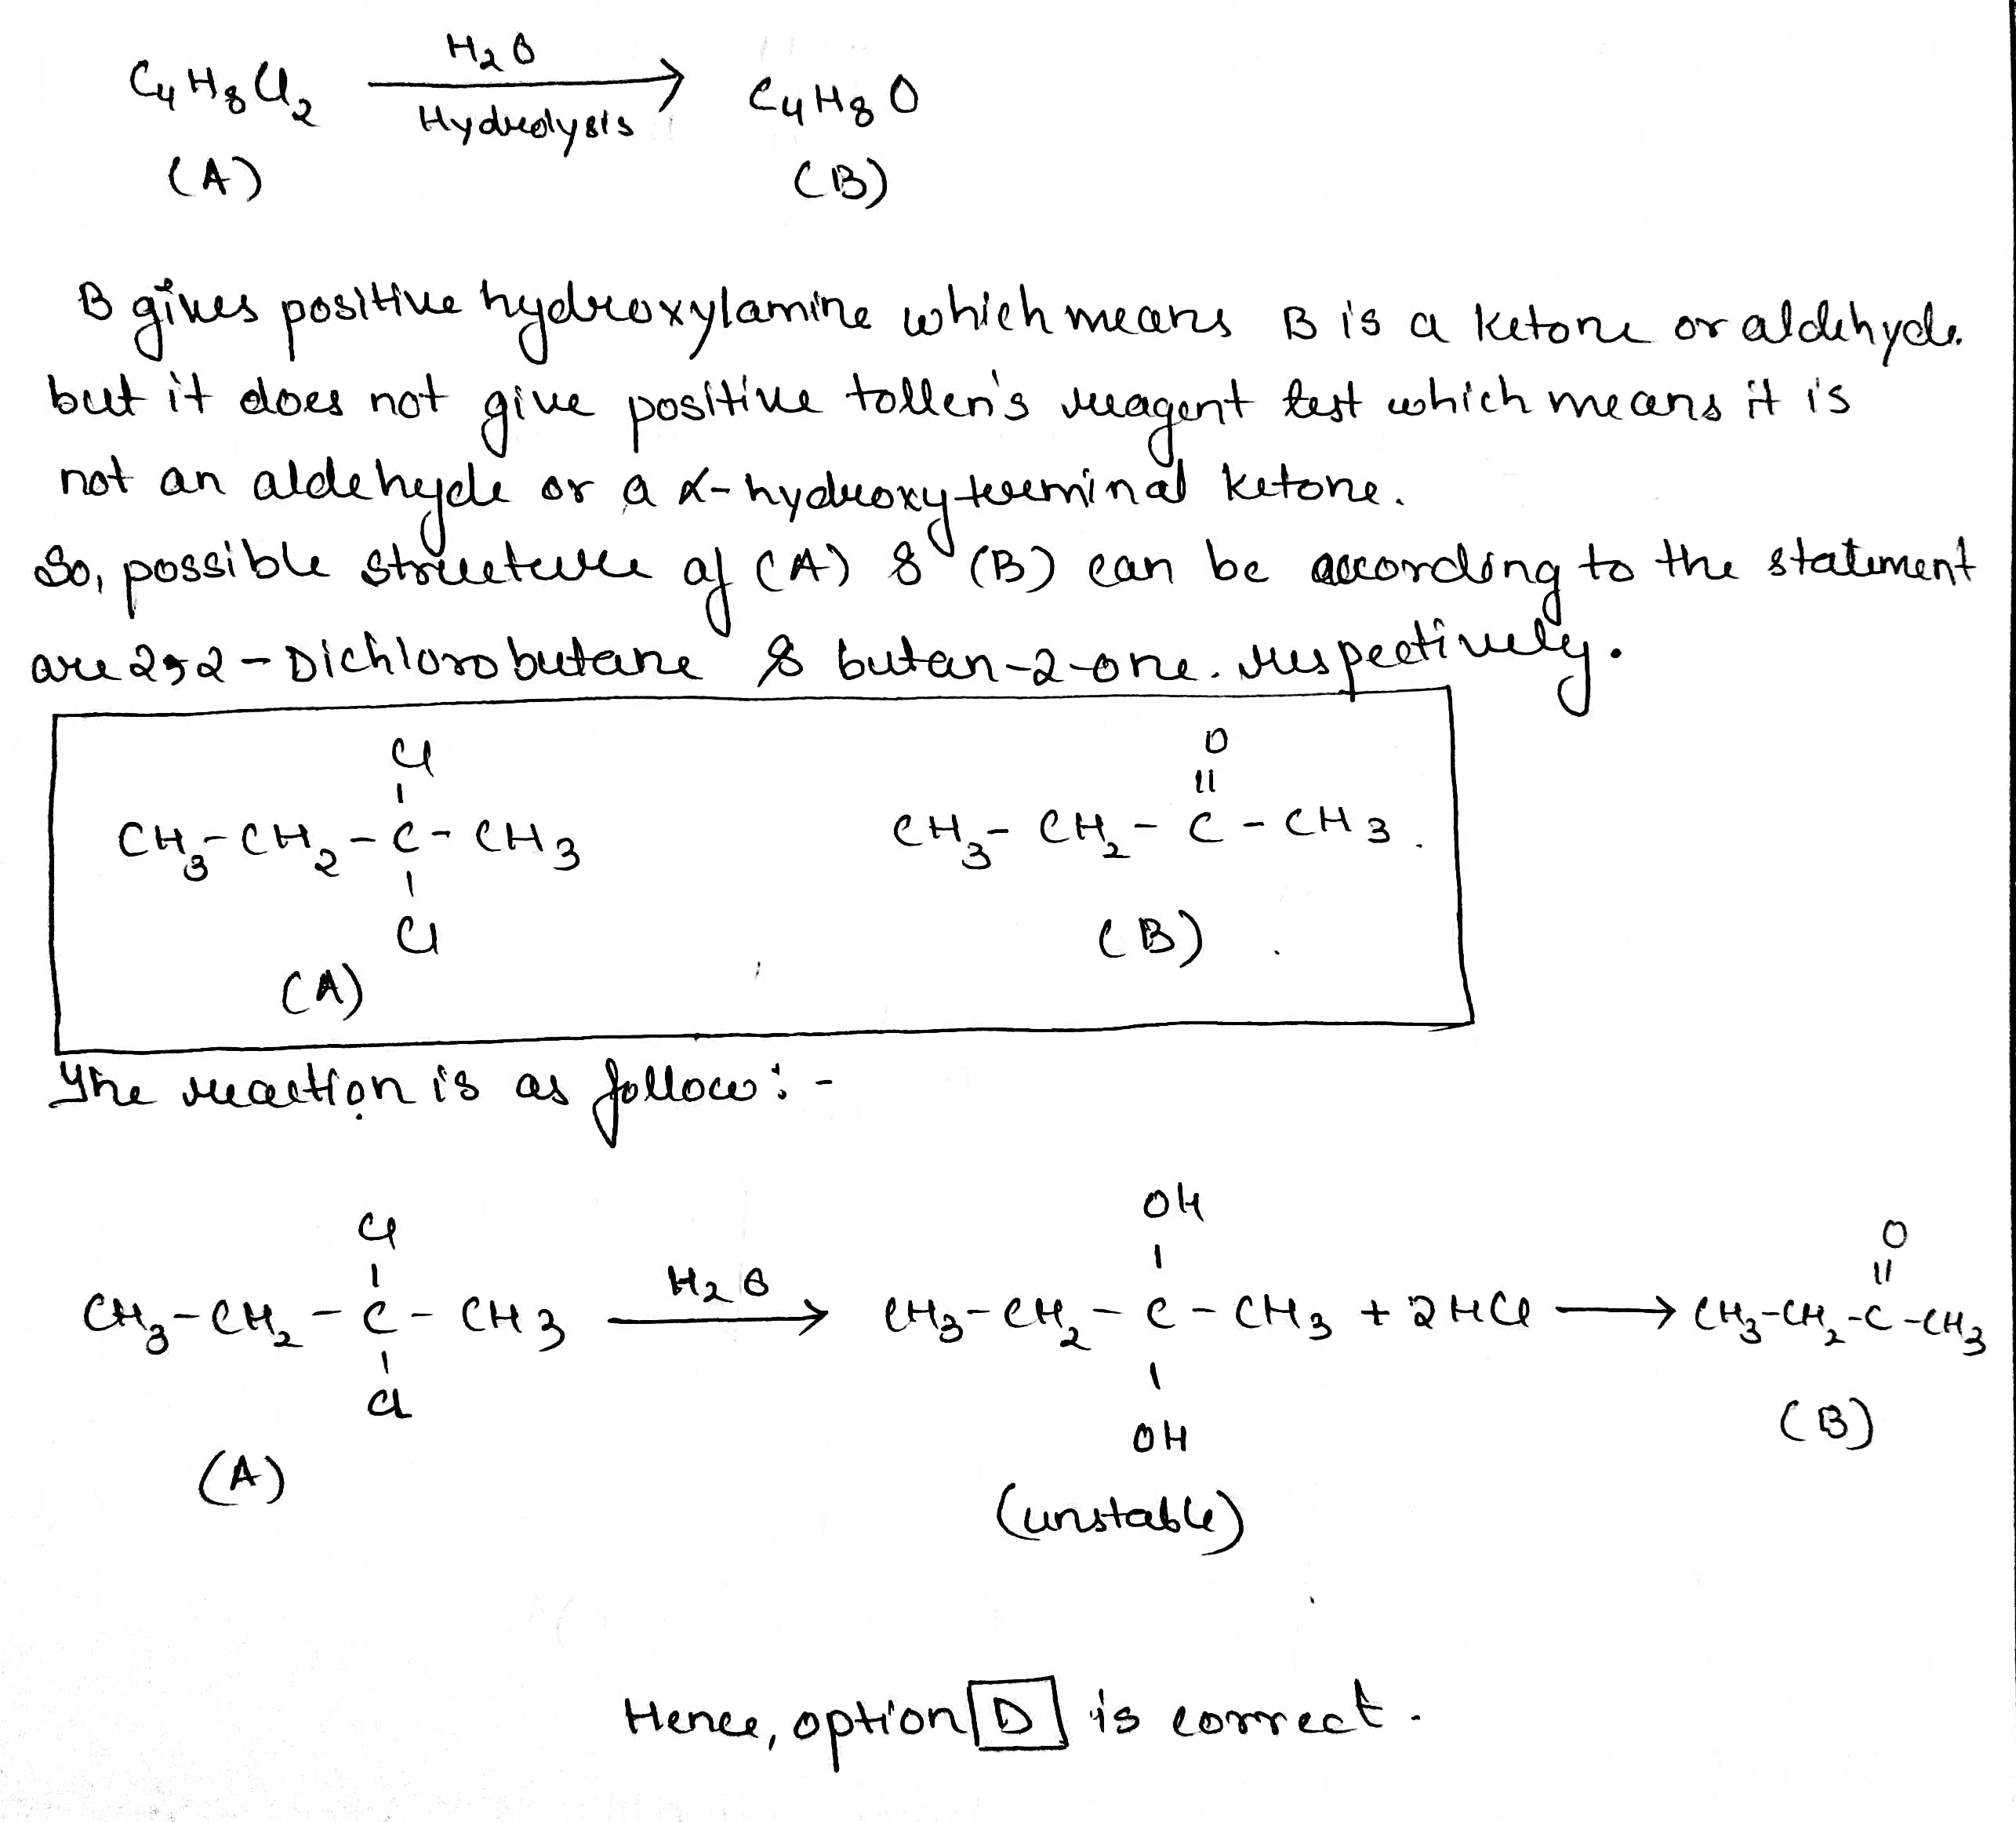 C₄H₈Cl₂ H₂O Hydrolysis → C₄H₈O
(A) (B)
B gives positive hydroxylamine which means B is a ketone or aldehyde.
but it does not give positive tollen's reagent test which means it is
not an aldehyde or a α-hydroxy terminal ketone.
So, possible structure of (A) & (B) can be according to the statement
are 2,2-Dichlorobutane & butan-2-one. respectively.
Cl O
CH₃-CH₂-C-CH₃ CH₃-CH₂-C-CH₃.
Cl (B)
(A)
The reaction is as follow:-
Cl OH O
CH₃-CH₂-C-CH₃ H₂O → CH₃-CH₂-C-CH₃ + 2HCl → CH₃-CH₂-C-CH₃
Cl OH (B)
(A) (unstable)
Hence, option D is correct.